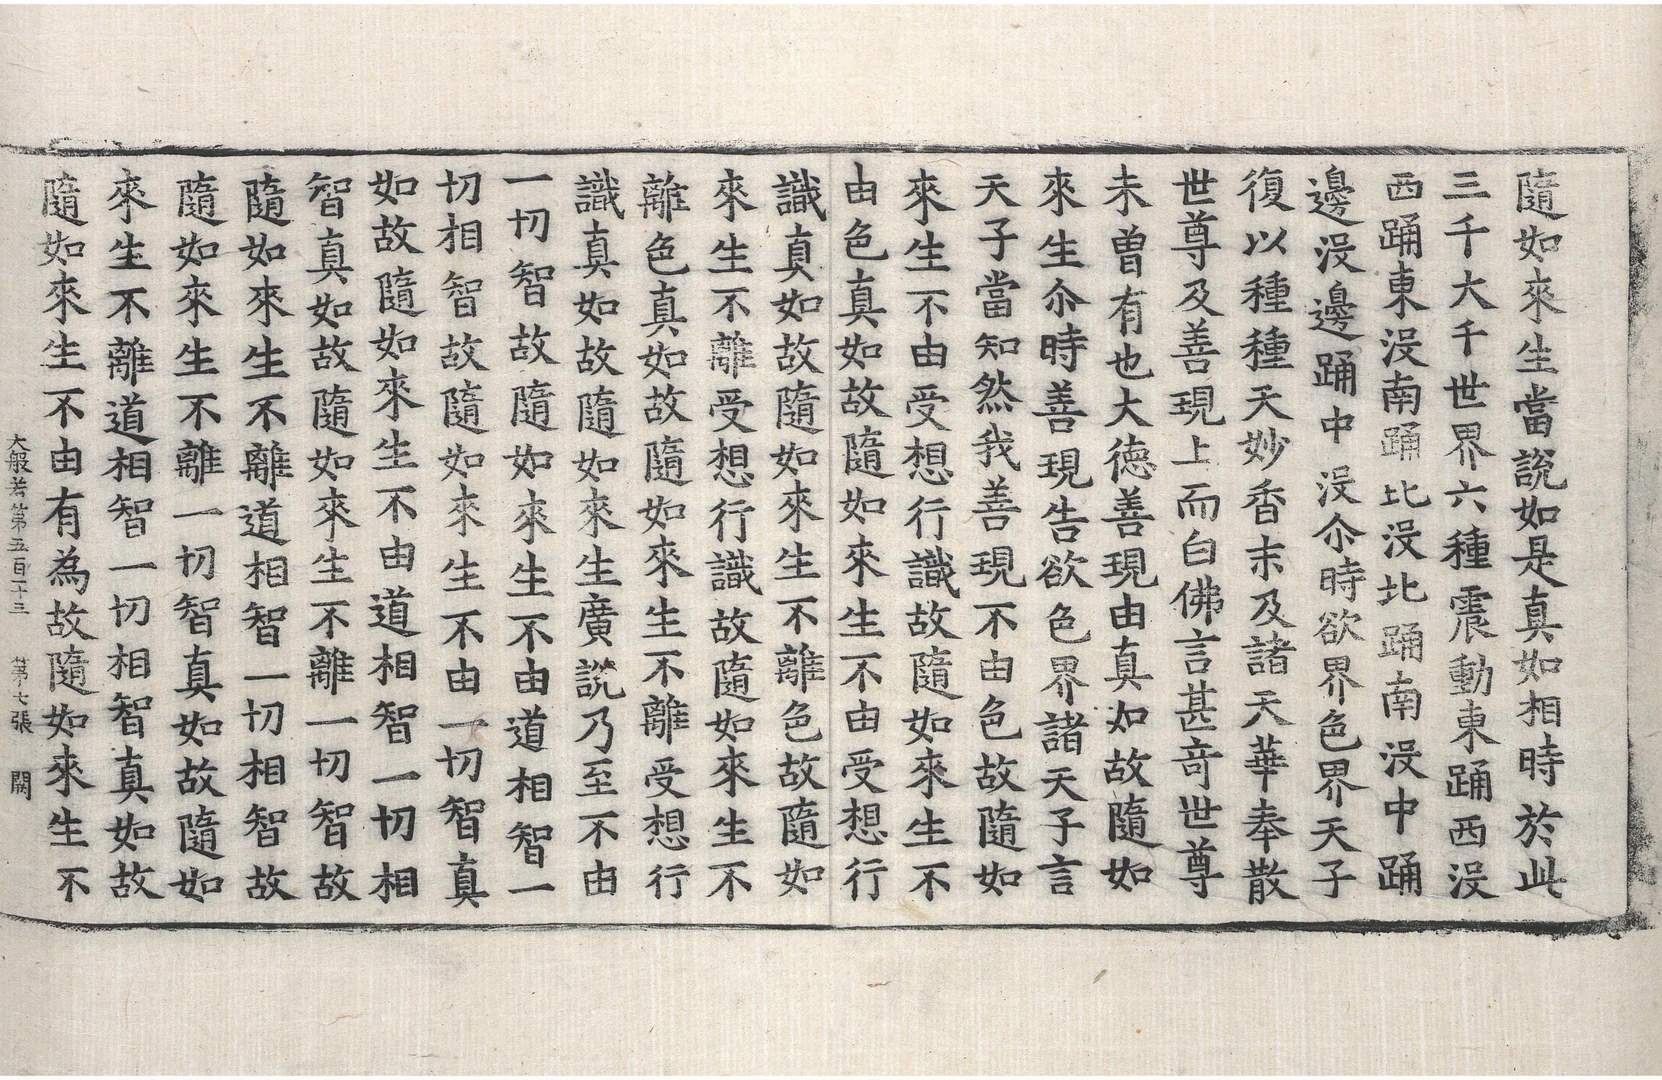 隨如來生當說如是真如相時於此
三千大千世界六種震動東踊西沒
西踊東沒南踊北沒北踊南沒中踊
邊沒邊踊中沒尒時欲界色界天子
復以種種天妙香末及諸天華奉散
世尊及善現上而白佛言甚奇世尊
未曾有也大德善現由真如故隨如
來生尒時善現告欲色界諸天子言
天子當知然我善現不由色故隨如
來生不由受想行識故隨如來生不
由色真如故隨如來生不由受想行
識真如故隨如來生不離色故隨如
來生不離受想行識故隨如來生不
離色真如故隨如來生不離受想行
識真如故隨如來生廣說乃至不由
一切智故隨如來生不由道相智一
切相智故隨如來生不由一切智真
如故隨如來生不由道相智一切相
智真如故隨如來生不離一切智故
隨如來生不離道相智一切相智故
隨如來生不離一切智真如故隨如
來生不離道相智一切相智真如故
隨如來生不由有為故隨如來生不
大般若第五百十三 第七張